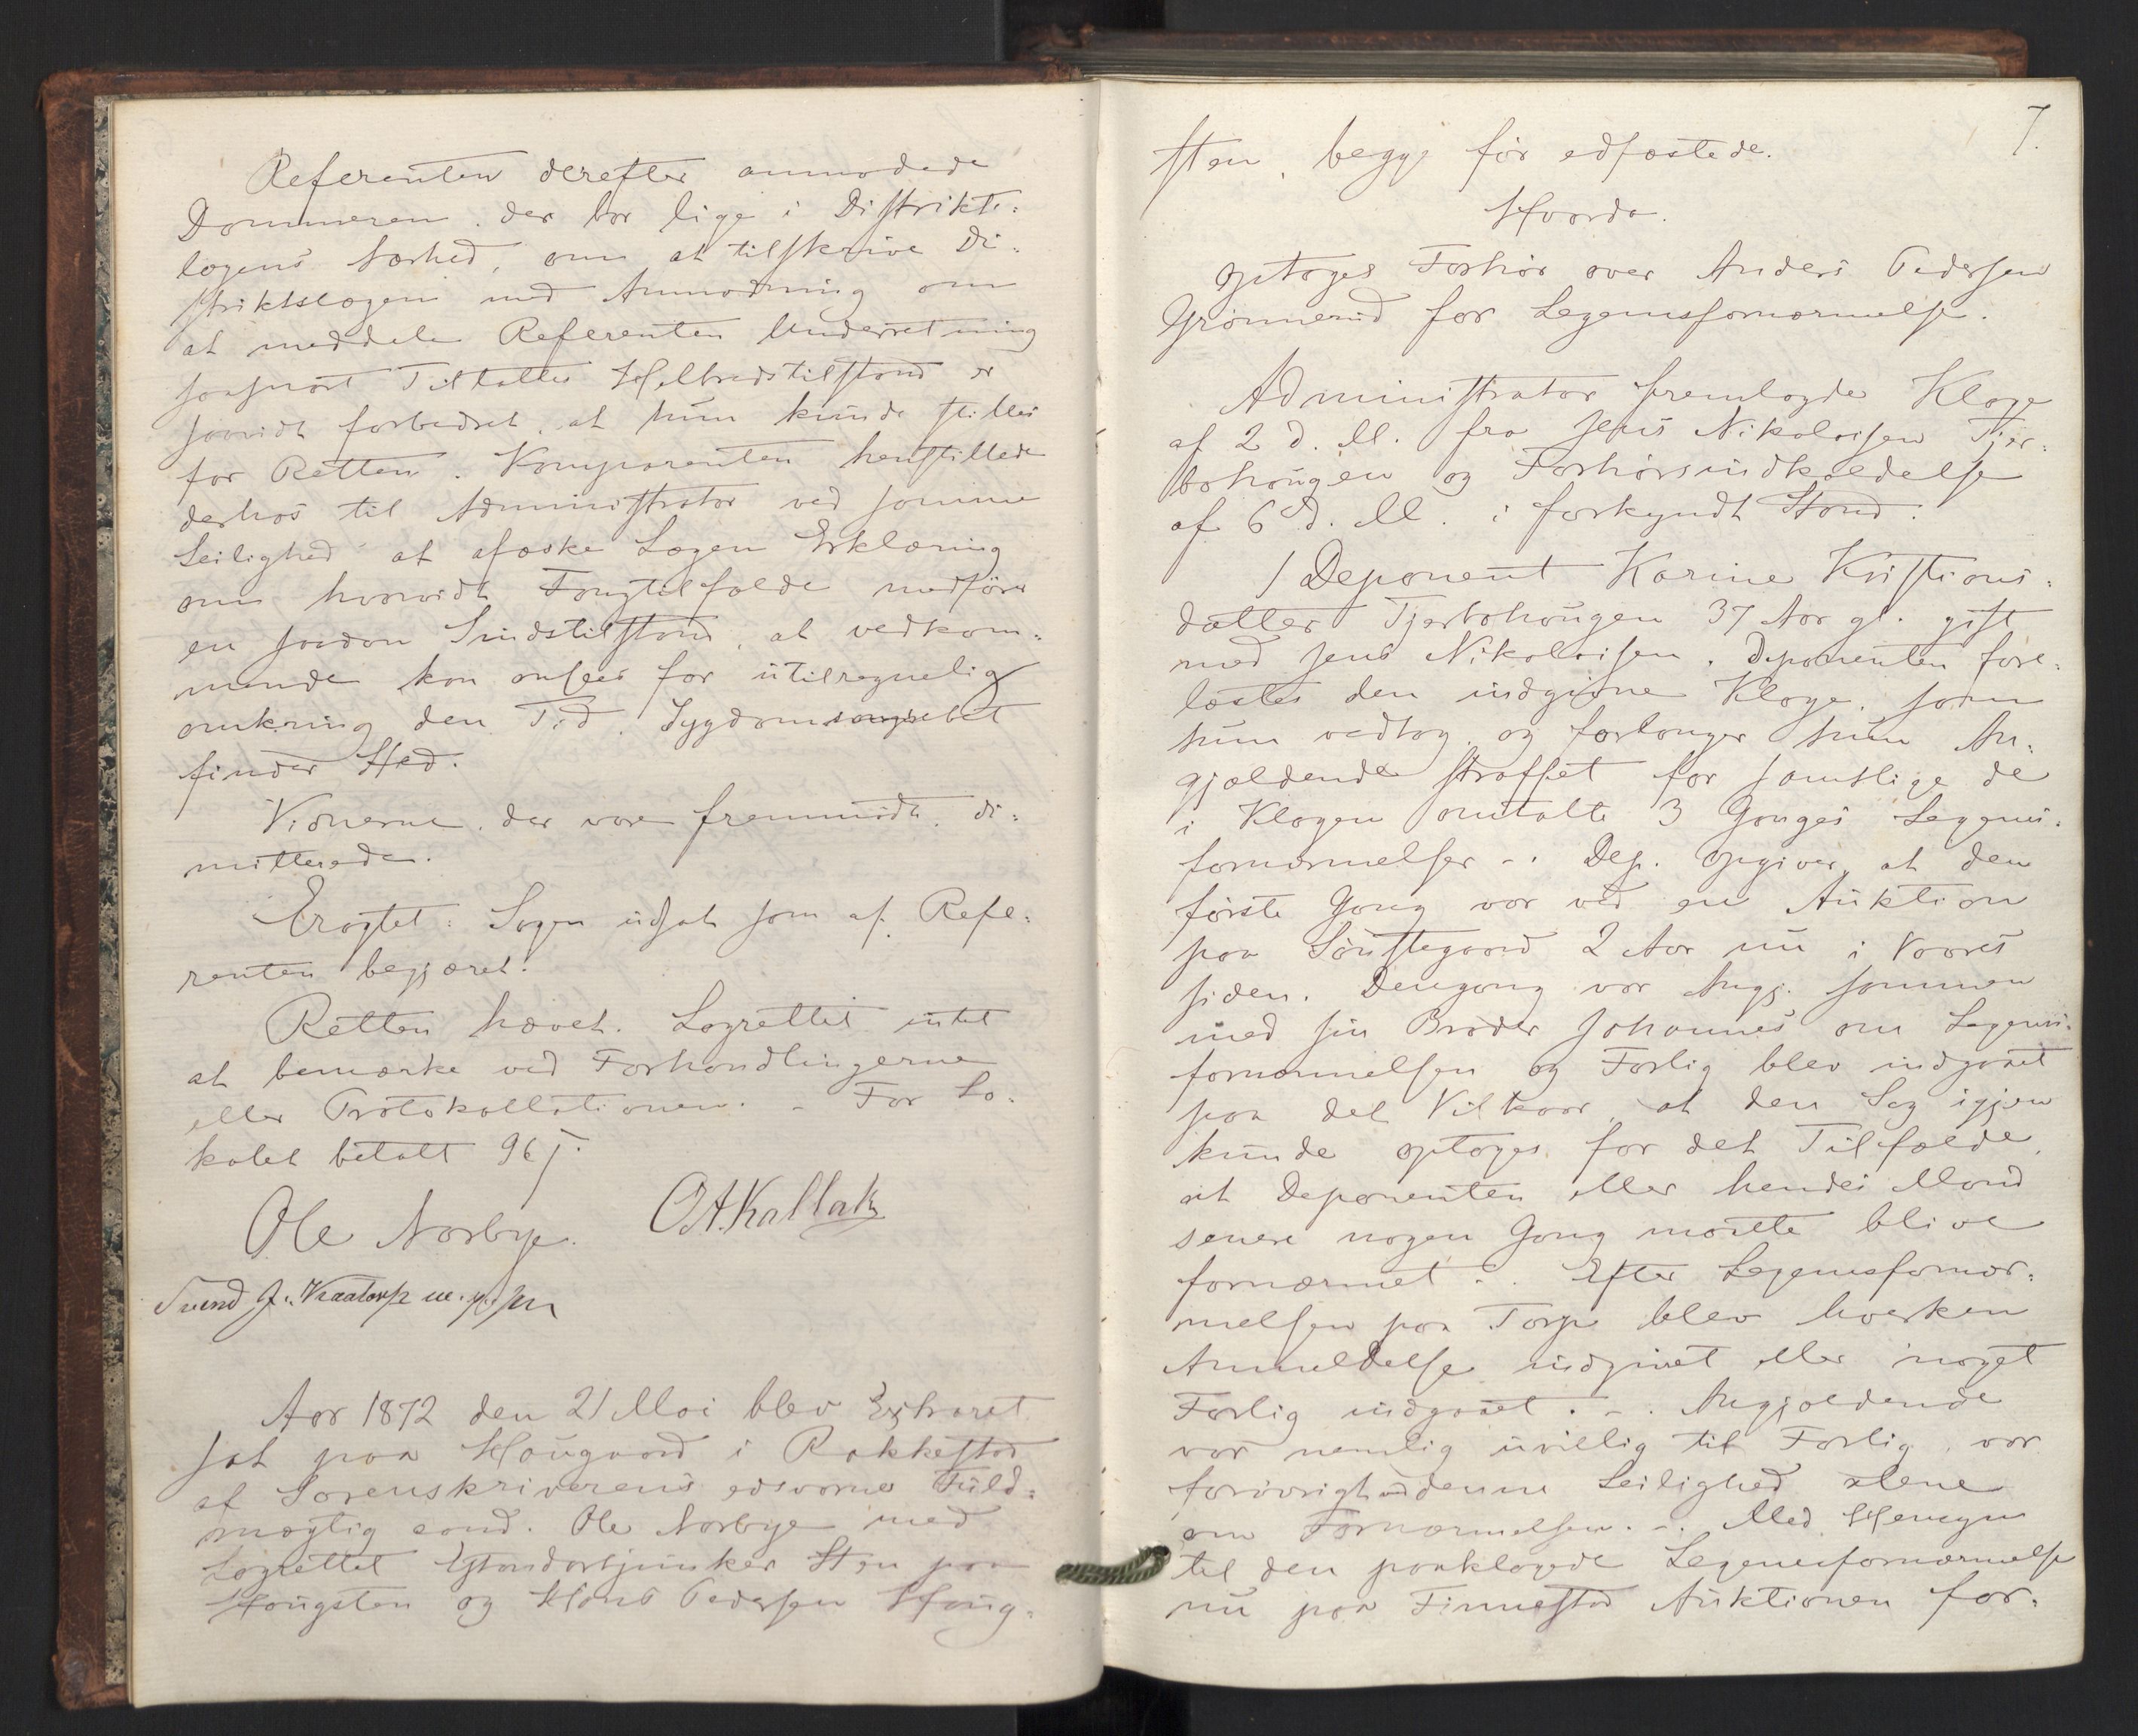 Referenten derefter anmodede
Dommeren, der bor lige i Distrikts-
lægens Nærhed, om at tilskrive Di-
striktslægen med Anmodning om
at meddele Referenten Underretning
saasnart Tiltaltes Helbredstilstand er
saavidt forbedret, at hun kunde stilles
for Retten. Komparenten henstillede
derhos til Administrator ved samme
Leilighed at afæske Lægen Erklæring
om hvorvidt Tilfælde medfører
en saadan Sindstilstand, at vedkom-
mende kan ansees for utilregnelig
omkring den Tid, Sygdomsangrebet
finder Sted.
Vidnerne, der vare fremmødte, di-
mitterede.
Eragtet: Sagen udsat som af Refe-
renten begjæret.
Retten hævet. Lagrettet intet
at bemærke ved Forhandlingerne
eller Protokollationen. - For Lo-
kalet betalt 96 s.
Ole Norbye. O.A. Kallak
Svend J. Kraatorp m. p. Pen
Aar 1872 den 21 Mai blev Extraret
sat paa Haugaard i Rakkestad
af Sorenskriverens edsvorne Fuld-
mægtig cand. Ole Norbye med
Lagrettet Standartjunker Sten paa
Haugsten og Hans Pedersen Haug-
7.
sten, begge før edfæstede.
Hvorda
optoges Forhør over Anders Pedersen
Grønnerud for Legemsfornærmelse.
Administrator fremlagde Klage
af 2 d. M. fra Jens Nikolaisen Tjer-
bohaugen og Forhørsindkaldelse
af 6 d. M. i forkyndt Stand.
1 Deponent Karine Kristians-
datter Tjerbohaugen 37 Aar gl. gift
med Jens Nikolaisen. Deponenten fore-
læstes den indgivne Klage, som
hun vedtog, og forlanger hun An-
gjældende straffet for samtlige de
i Klagen omtalte 3 Ganges Legems-
fornærmelser -. Dep. opgiver, at den
første Gang var ved en Auktion
paa Lønstegaard 2 Aar nu i Vaares
siden. Dengang var Angj. sammen
med sin Broder Johannes om Legems-
fornærmelsen og Forlig blev indgaaet
paa det Vilkaar, at den Sag igjen
kunde optages for det Tilfælde,
at Deponenten eller hendes Mand
senere nogen Gang maatte blive
fornærmet -. Efter Legemsfornær-
melsen paa Torpe blev hverken
Anmeldelse indgivet eller noget
Forlig indgaaet. -. Angjældende
var nemlig uvillig til Forlig, var
forøvrigt ved denne Leilighed alene
om Fornærmelsen. -. Med Hensyn
til den paaklagede Legemsfornærmelse
nu paa Finnestad Auktionen for-